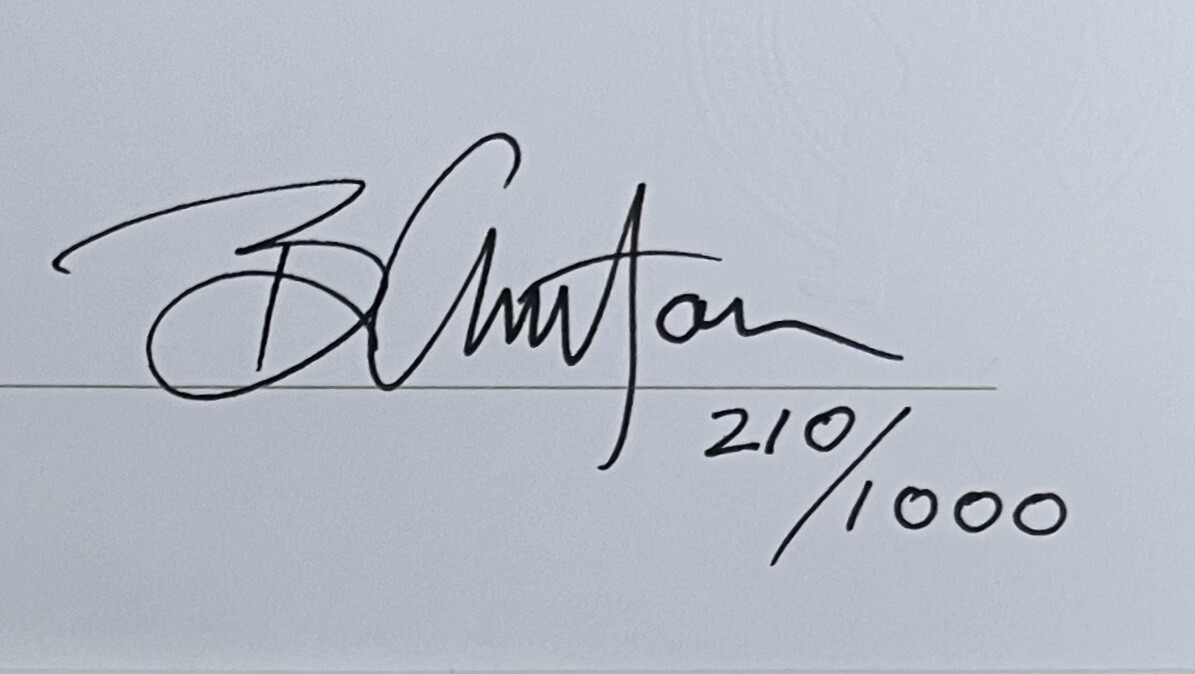 B Clinton
210/1000